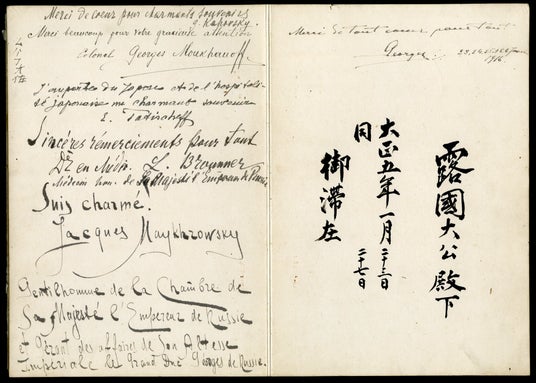 Merci de coeur pour charmants souvenirs
Mes beaucoup pour votre gracieuse attention
Colonel Georges Moukhanoff
J'emporte du Japon et de l'hospitali-
té japonaise un charmant souvenir
Sincères remerciements pour tout
Dr en Médn. Brunner
Médecin hon. de Sa Majesté l'Empereur de Russie
Suis charmé.
Jacques Maykhrowsky
Gentilhomme de la Chambre de
Sa Majesté l'Empereur de Russie
et Gérant des affaires de Son Altesse
Imperiale le Grand Duc Georges de Russie.
Merci de tout coeur pour tout
Georges
1916
露國大公殿下
大正五年一月二十三日
同 二十七日
御滞在